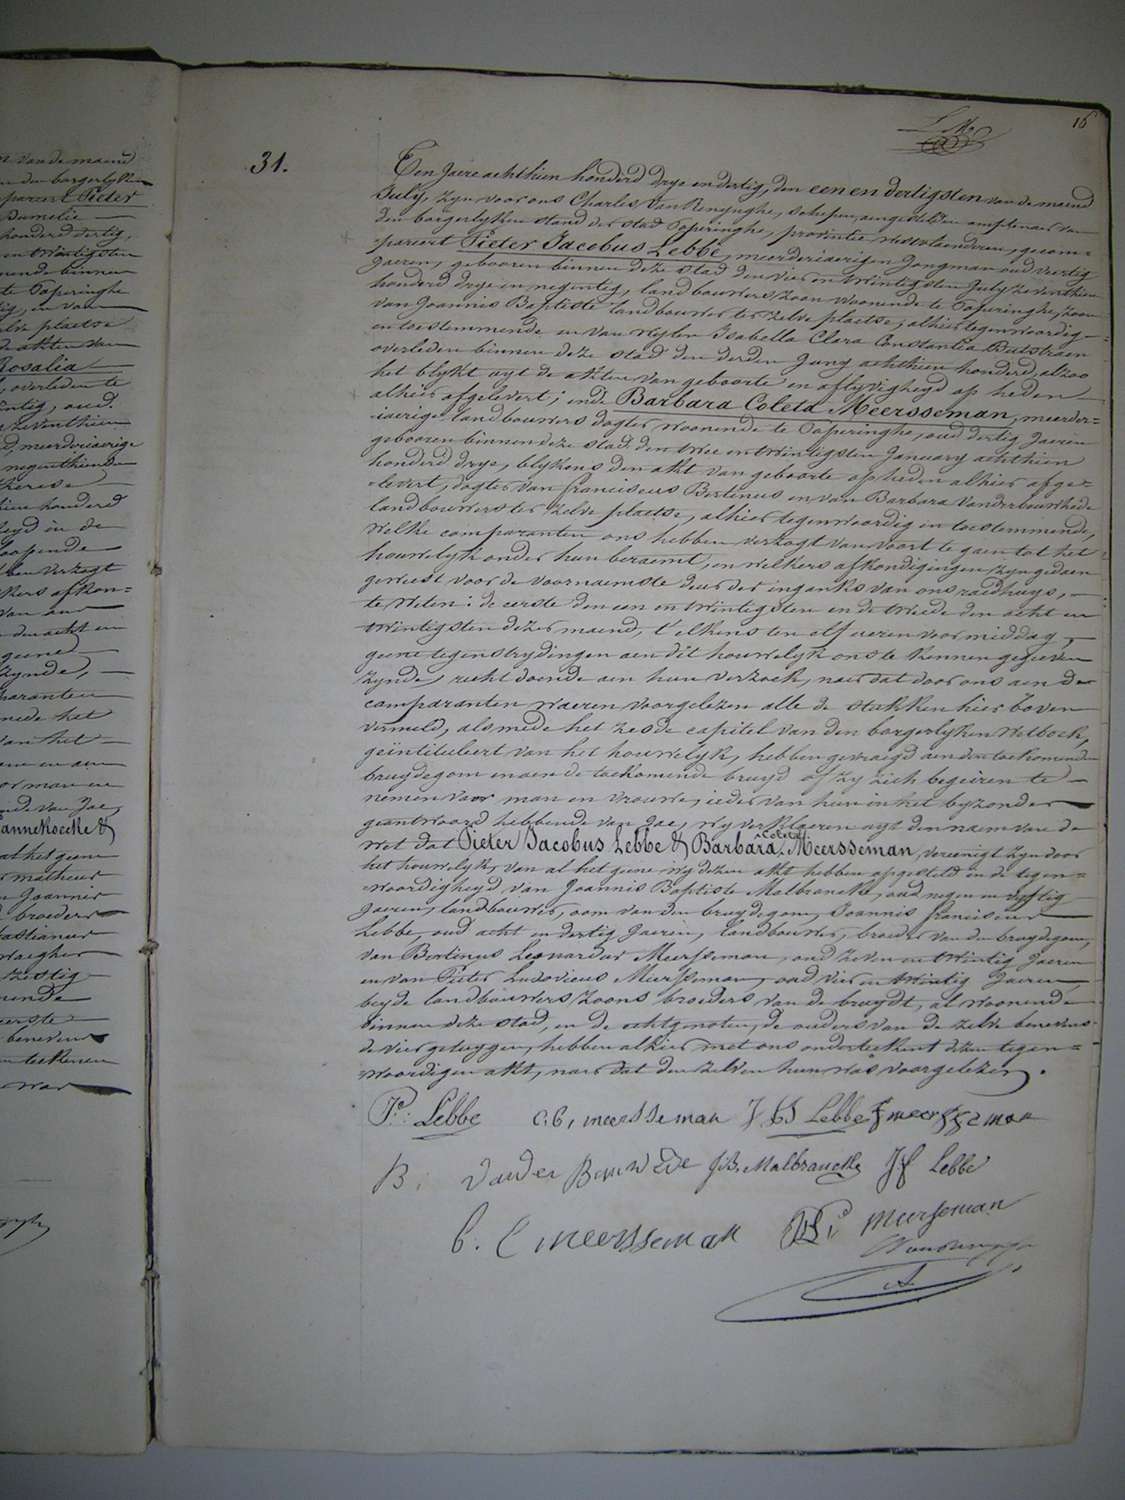 16
31.
Een Jaere achthien honderd drye en dertig, den een en dertigsten van de maend
July, zyn voor ons Charles Van Renynghe, schepen, aengestelden amptenaer van
den borgerlyken stand der stad Poperinghe, provintie westvlaenderen, gecom-
pareert Pieter Jacobus Lebbe, meerderiaerigen Jongman oud veertig
Jaeren, gebooren binnen deze stad den vier en twintigsten July zeventhien
honderd drye en negentig, landbouwers zoon woonende te Poperinghe, zoon
van Joannis Baptiste landbouwer ter zelve plaetse, alhier tegenwoordig
en toestemmende en van wylen Isabella Clara Constantia Butstraen
overleden binnen deze stad den derden Juny achthien honderd, alzoo
het blykt uyt de akten van geboorte en aflyvigheyd op heden
alhier afgelevert; ende Barbara Coleta Meersseman, meerder-
iaerige landbouwers dogter, woonende te Poperinghe, oud dertig Jaeren
gebooren binnen deze stad den twee en twintigsten January achthien
honderd drye, blykens den akt van geboorte op heden alhier afge-
levert, dogter van franciscus Bertinus en van Barbara Vanderbouwhede
landbouwers ter zelve plaetse, alhier tegenwoordig en toestemmende,
welke comparanten ons hebben verzogt van voort te gaen tot het
houwelyk onder hun beraemt, en welkers afkondigingen zyn gedaen
geweest voor de voornaemste deur der ingank van ons raedhuys,
te weten: de eerste den een en twintigsten en de tweede den acht en
twintigsten dezer maend, t'elkens ten elf ueren voor middag,
geene tegenstrydingen aen dit houwelyk ons te kennen gegeven
zynde, recht doende aen hun verzoek, naer dat door ons aen de
comparanten waeren voorgelezen alle de stukken hier boven
vermeld, alsmede het zesde capitel van den borgerlyken wetboek,
geïntituleert van het houwelyk, hebben gevraegd aen den toekomenden
bruydegom en aen de toekomende bruyd of zy zich begeiren te
nemen voor man en vrouwe, ieder van hun in het byzonder
geantwoord hebbende van Jae, wy verklaeren uyt den naem van de
wet dat Pieter Jacobus Lebbe & Barbara Coleta Meersseman, vereenigt zyn door
het houwelyk, van al het geene wy dezen akt hebben opgesteld in de tegen-
woordigheyd, van Joannis Baptiste Malbrancke, oud negen en vyftig
Jaeren, landbouwer, oom van den bruydegom, Joannis franciscus
Lebbe, oud acht en dertig Jaeren, landbouwer, broeder van den bruydegom,
van Bertinus Leonardus Meersseman, oud zeven en twintig Jaeren
en van Pieter Ludovicus Meersseman, oud vier en twintig Jaeren,
beyde landbouwers zoons broeders van de bruydt, al woonende
binnen deze stad, en de echtgenoten, de ouders van de zelve benevens
de vier getuygen, hebben alhier met ons onderteekent dezen tegen-
woordigen akt, naer dat den zelven hun was voorgelezen.
P: Lebbe c. b, meersseman J B Lebbe f meersseman
B: vander Bouwede J.B. Malbrancke J f Lebbe
b. l meersseman P L meerseman